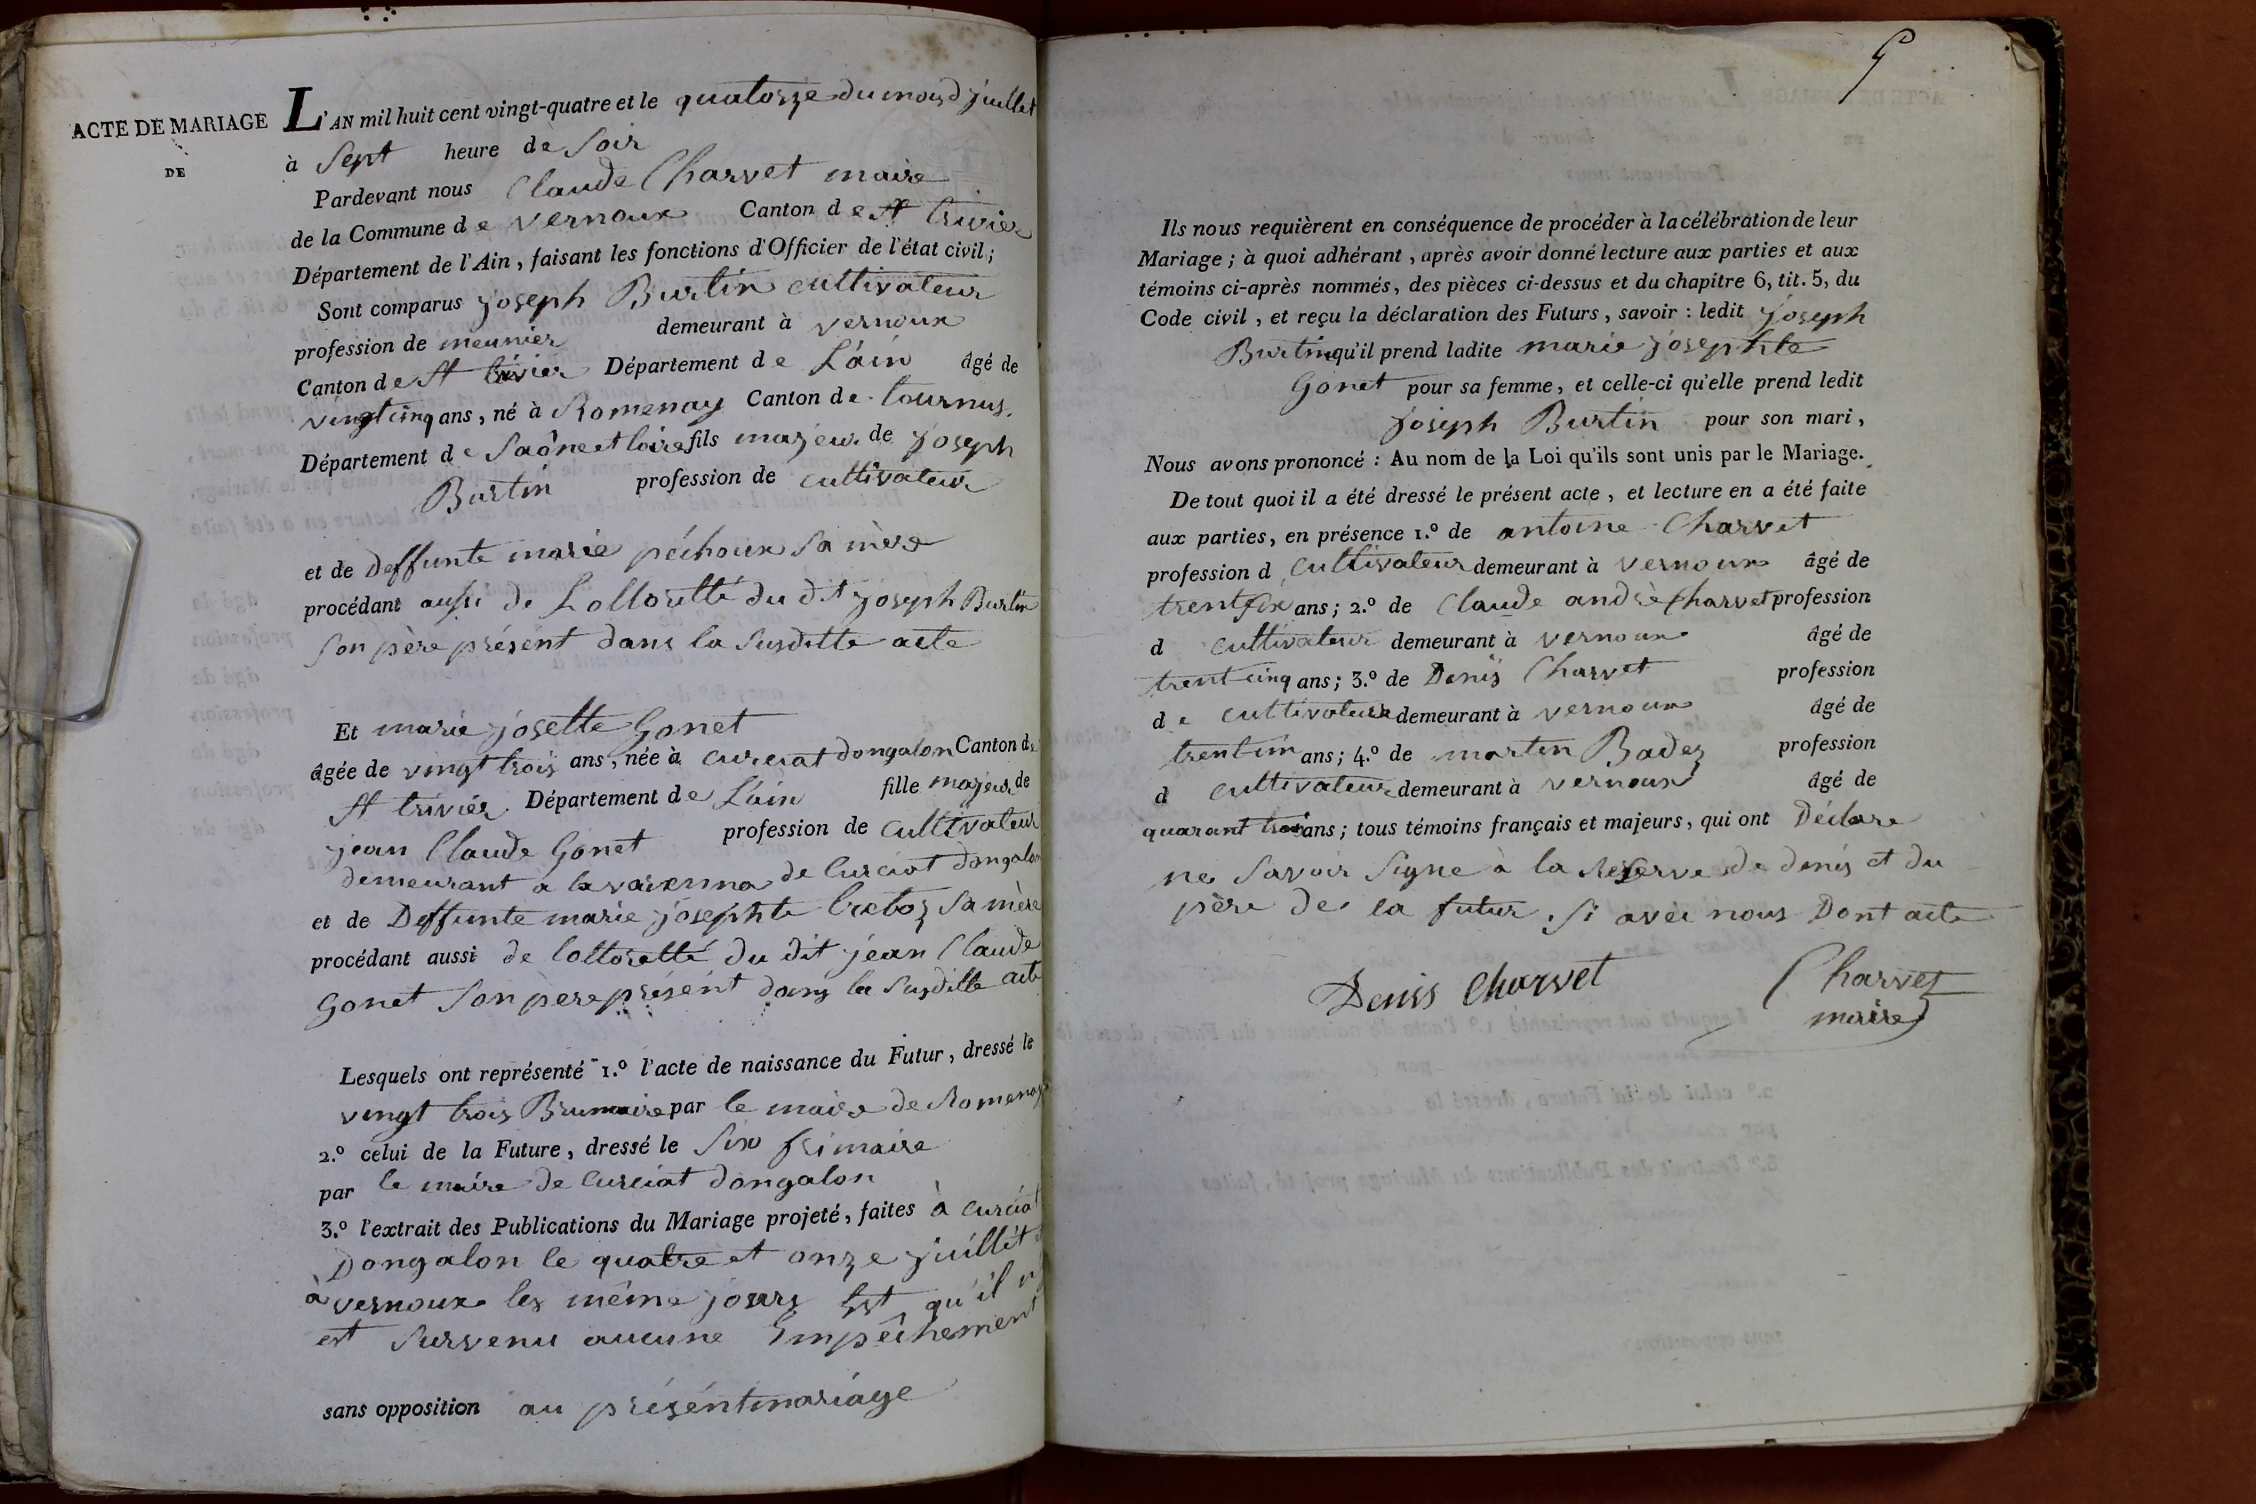 ACTE DE MARIAGE
DE
L'AN mil huit cent vingt-quatre et le quatorze du mois d juillet
à Sept heure de Soir
Pardevant nous Claude Charvet maire
de la Commune de vernoux Canton de St trivier
Département de l'Ain, faisant les fonctions d'Officier de l'état civil;
Sont comparus joseph Burtin cultivateur
profession de meunier demeurant à vernoux
Canton de St trivier Département de L'ain âgé de
vingt cinq ans, né à Romenay Canton de tournus.
Département de Saône et loire fils majeur de joseph
Burtin profession de cultivateur
et de deffunte marie péchoux sa mère
procédant aussi de Lottorétté du dit joseph Burtin
son père présent dans la susditte acte
Et marie josette Gonet
âgée de vingt trois ans, née à curciat dongalon Canton de
St trivier Département de L'ain fille majeur de
jean Claude Gonet profession de cultivateur
demeurant a la varenna de Curciat dongalon
et de Deffunte marie josephte sa mère
procédant aussi de lottoretté du dit jean Claude
Gonet Son père présént dans la susditte acte
Lesquels ont représenté 1.º l'acte de naissance du Futur, dressé le
vingt trois Brumaire par le maire de Romenay
2.º celui de la Future, dressé le Six frimaire
par le maire de Curciat dongalon
3.º l'extrait des Publications du Mariage projeté, faites à curciat
Dongalon le quatre et onze juillét
à vernoux les même jours Est qu'il n'
est survenu aucune Empêchement
sans opposition au présént mariage
5
Ils nous requièrent en conséquence de procéder à la célébration de leur
Mariage; à quoi adhérant, après avoir donné lecture aux parties et aux
témoins ci-après nommés, des pièces ci-dessus et du chapitre 6, tit. 5, du
Code civil, et reçu la déclaration des Futurs, savoir: ledit joseph
Burtin qu'il prend ladite marie josephte
Gonet pour sa femme, et celle-ci qu'elle prend ledit
joseph Burtin pour son mari,
Nous avons prononcé: Au nom de la Loi qu'ils sont unis par le Mariage.
De tout quoi il a été dressé le présent acte, et lecture en a été faite
aux parties, en présence 1.º de antoine Charvet
profession d cultivateur demeurant à vernoux âgé de
trent six ans; 2.º de Claude andré Charvet profession
d cultivateur demeurant à vernoux âgé de
trent cinq ans; 3.º de Denis Charvet profession
de cultivateur demeurant à vernoux âgé de
trent un ans; 4.º de martin Badez profession
d cultivateur demeurant à vernoux âgé de
quarant trois ans; tous témoins français et majeurs, qui ont Déclare
ne savoir signe à la reserve de denis et du
père de la futur si avec nous Dont acte
Denis Charvet
Charvet
maire